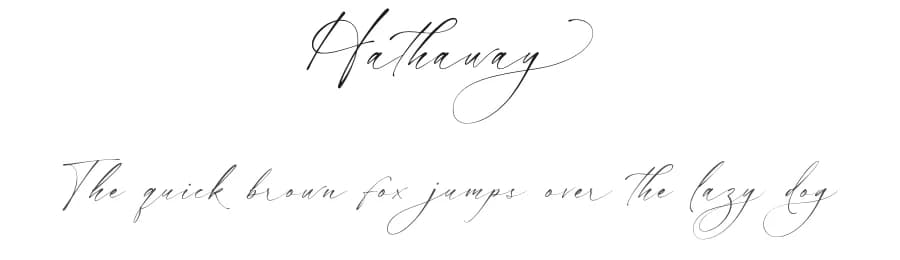 Hathaway
The quick brown fox jumps over the lazy dog